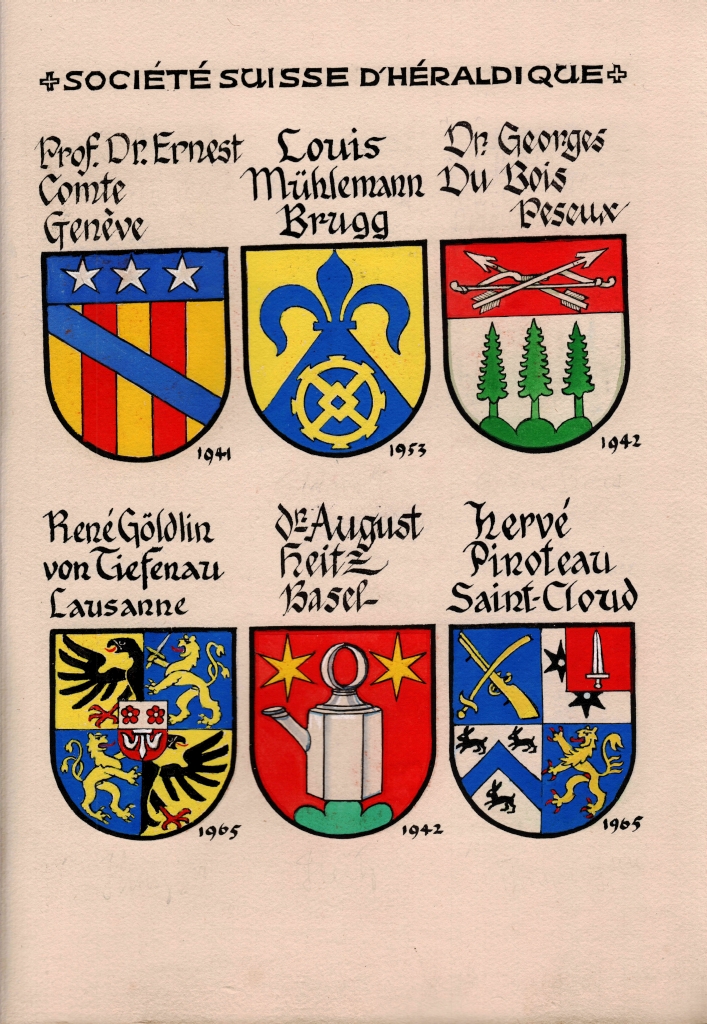 SOCIÉTÉ SUISSE D'HÉRALDIQUE
Prof. Dr. Ernest
Comte
Genève
1941
Louis
Mühlemann
Brugg
1953
Dr. Georges
Du Bois
Peseux
1942
René Göldlin
von Tiefenau
Lausanne
1965
Dr. August
Heitz
Basel
1942
Hervé
Pinoteau
Saint-Cloud
1965